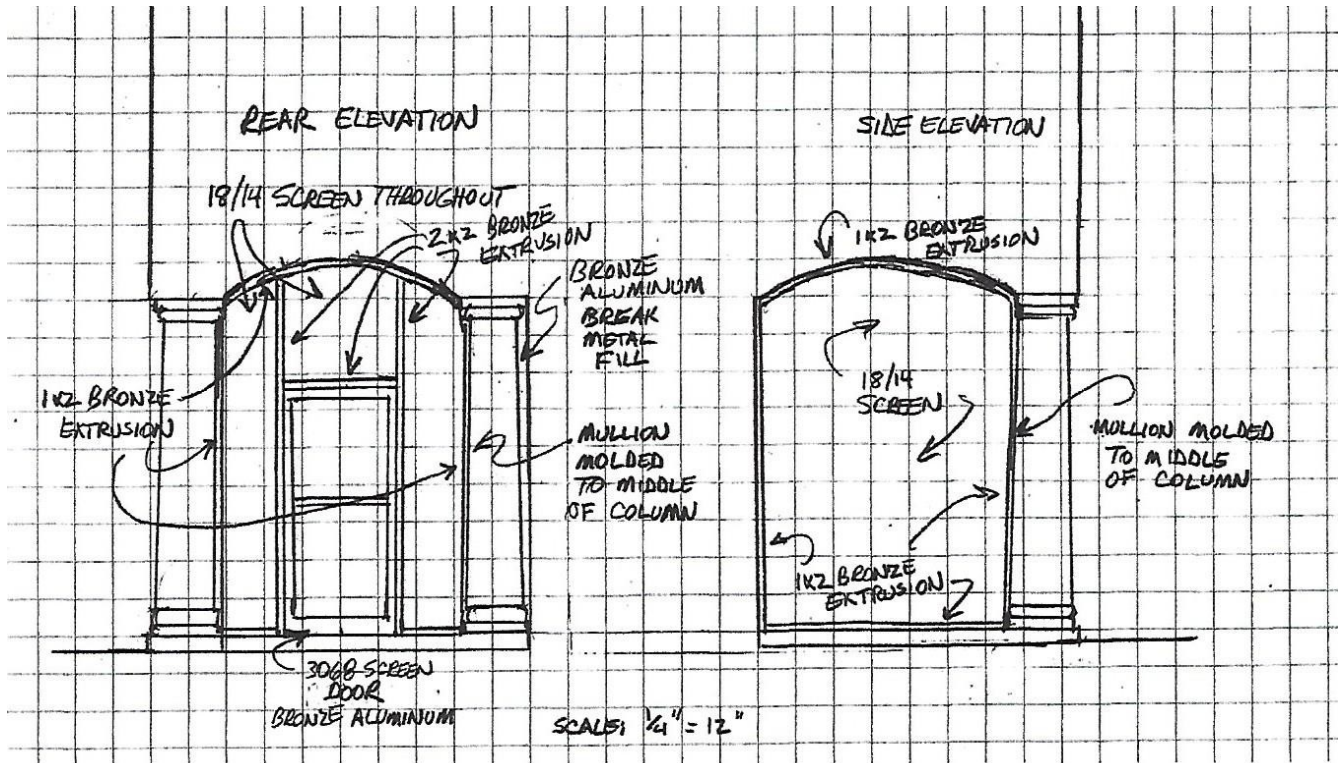 REAR ELEVATION
18/14 SCREEN THROUGHOUT
2x2 BRONZE
EXTRUSION
BRONZE
ALUMINUM
BREAK
METAL
FILL
1x2 BRONZE
EXTRUSION
MULLION
MOLDED
TO MIDDLE
OF COLUMN
3068 SCREEN
DOOR
BRONZE ALUMINUM
SCALE: 1/4" = 12"
SIDE ELEVATION
1x2 BRONZE
EXTRUSION
18/14
SCREEN
MULLION MOLDED
TO MIDDLE
OF COLUMN
1x2 BRONZE
EXTRUSION